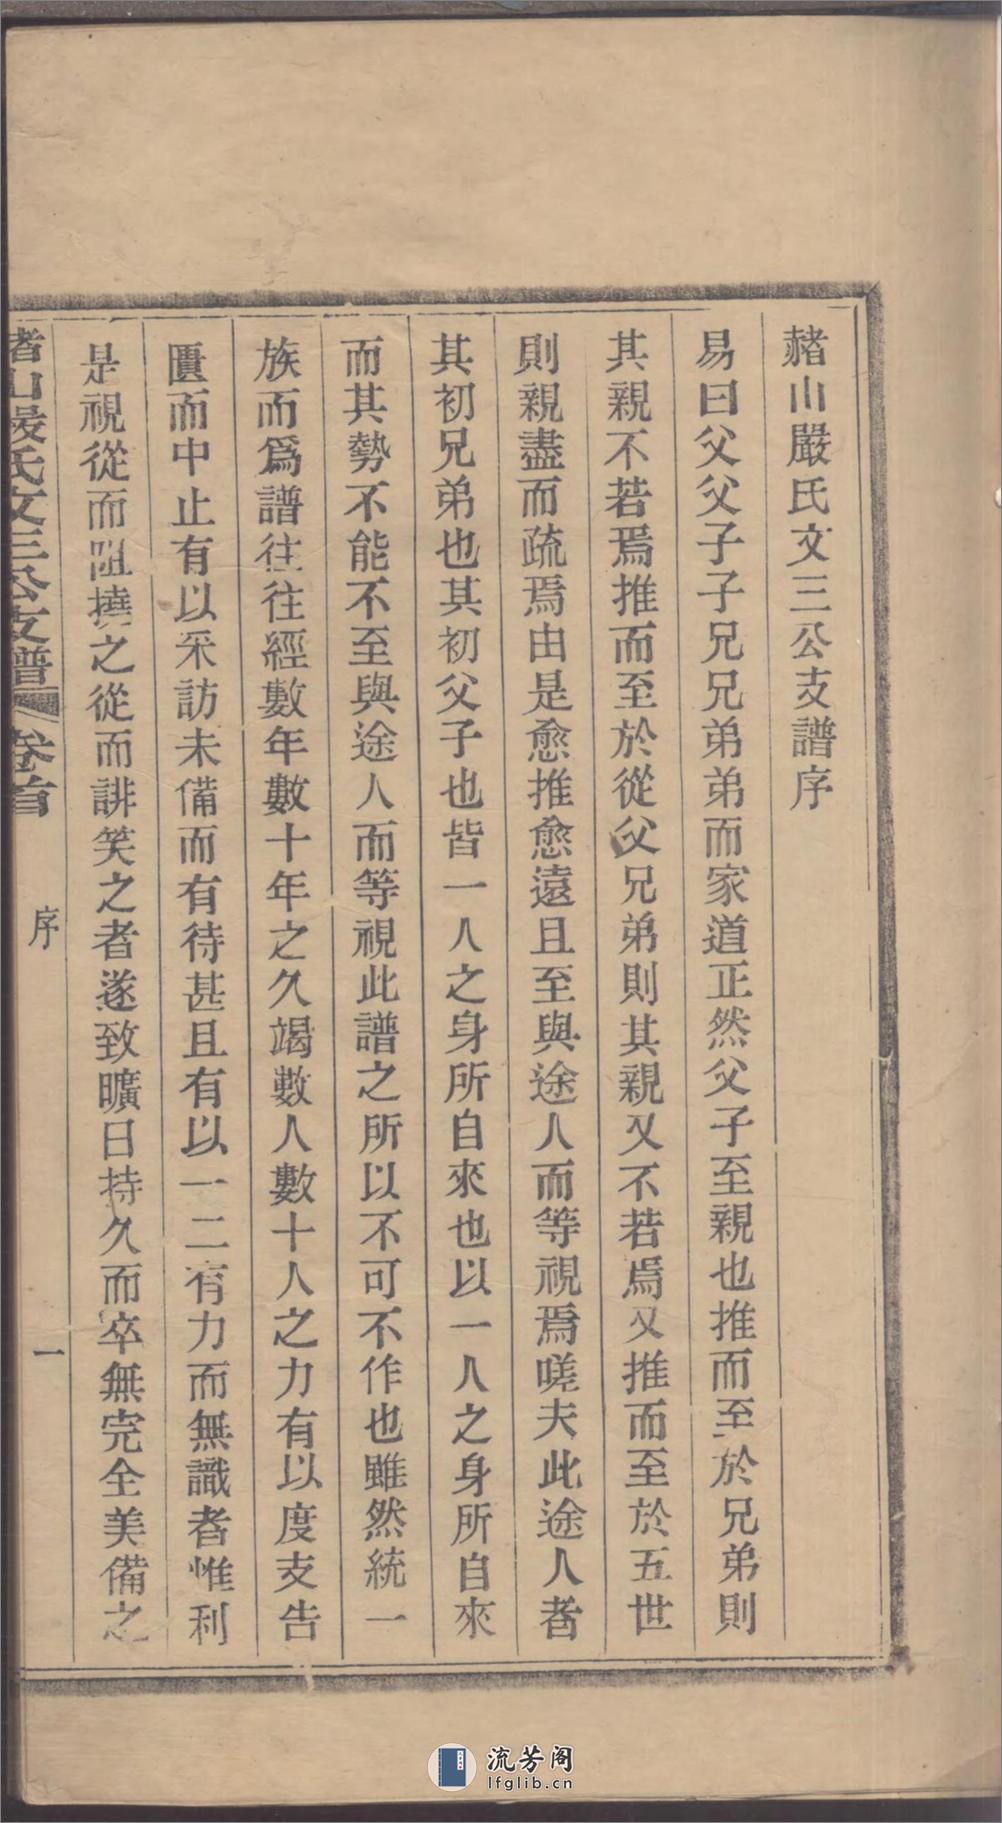 赭山嚴氏文三公支譜序
易曰父父子子兄兄弟弟而家道正然父子至親也推而至於兄弟則
其親不若焉推而至於從父兄弟則其親又不若焉又推而至於五世
則親盡而疏焉由是愈推愈遠且至與途人而等視焉嗟夫此途人者
其初兄弟也其初父子也皆一人之身所自來也以一人之身所自來
而其勢不能不至與途人而等視此譜之所以不可不作也雖然統一
族而爲譜往往經數年數十年之久竭數人數十人之力有以度支告
匱而中止有以采訪未備而有待甚且有以一二有力而無識者惟利
是視從而阻撓之從而誹笑之者遂致曠日持久而卒無完全美備之
赭山嚴氏文三公支譜 卷首 序 一
流芳阁
lfglib.cn